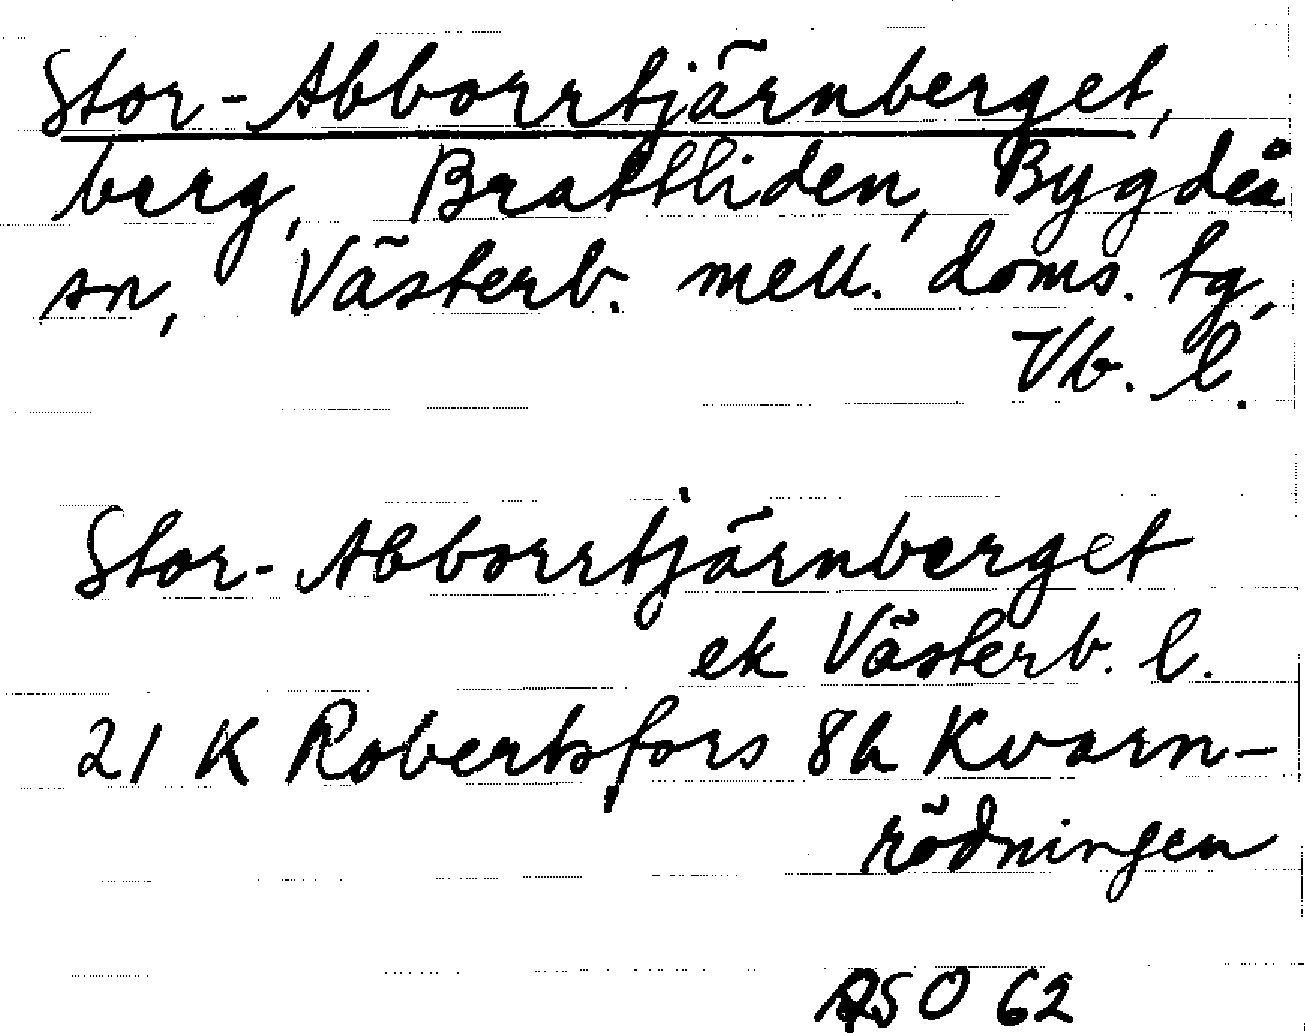 Stor-Abborrtjärnberget,
berg, Brattliden, Bygdeå
sn, Västerb. mell. doms. tg,
Vb. l.
Stor-Abborrtjärnberget
ek Västerb. l.
21 K Robertsfors 8h Kvarn-
rödningen
62